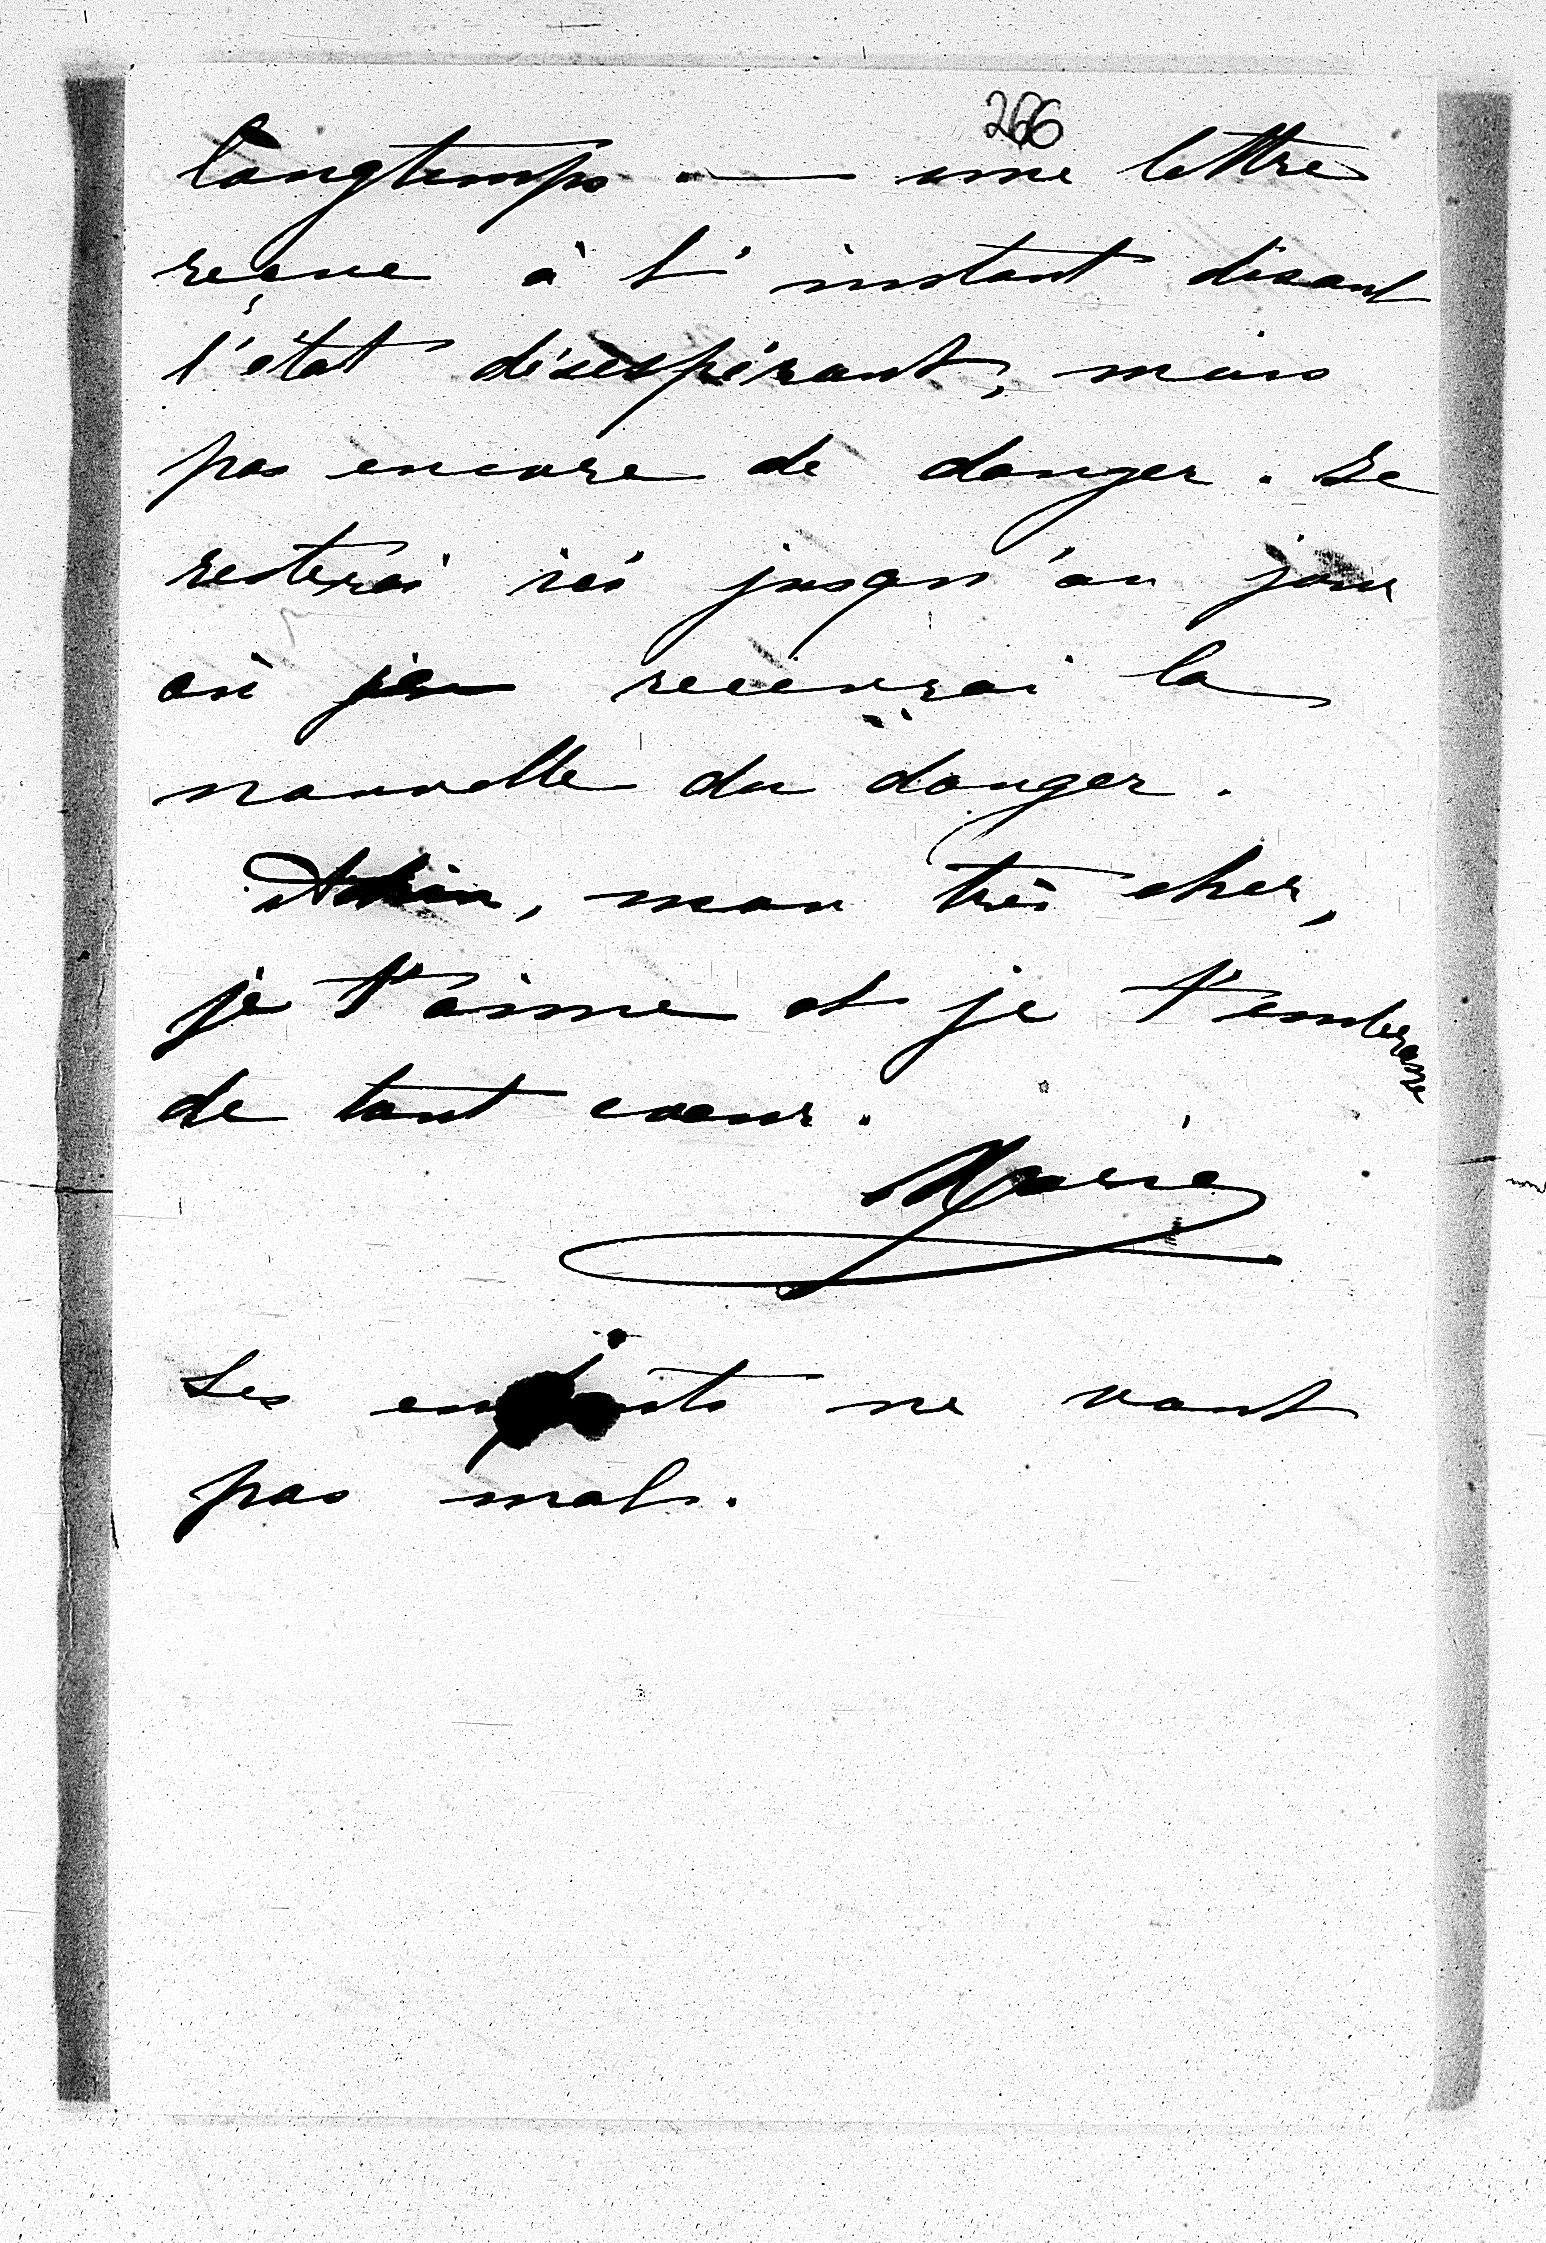 266
longtemps. — une lettre
reçue à l'instant disant
l'état désespérant, mais
pas encore de danger. Je
resterai ici jusqu'au jour
où je recevrai la
nouvelle du danger.
mon très cher,
je t'aime et je t'embrasse
de tout coeur.
Marie
Les enfants ne vont
pas mal.